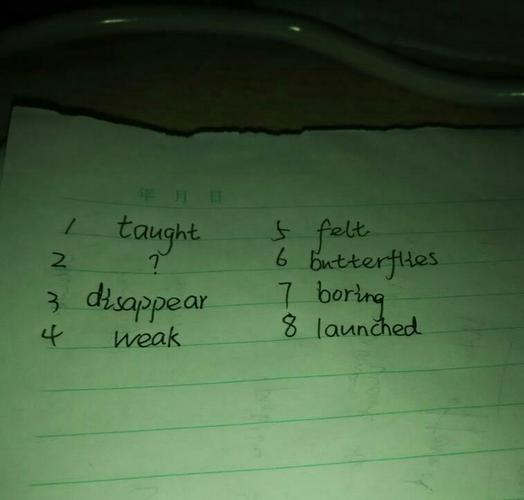 年 月 日
1 taught 5 felt
2 ? 6 butterflies
3 disappear 7 boring
4 weak 8 launched